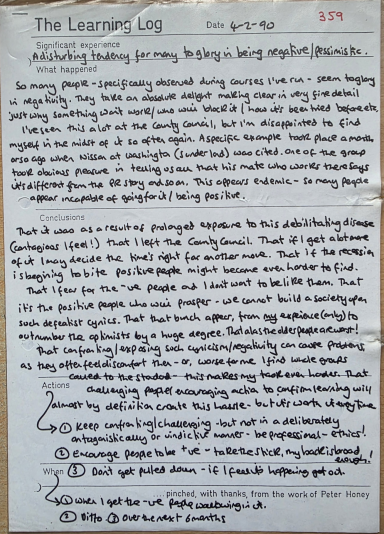 The Learning Log
Date 4-2-90
359
Significant experience
A disturbing tendency for many to glory in being negative/pessimistic.
What happened
So many people - specifically observed during courses I've run - seem to glory
in negativity. They take an absolute delight making clear in very fine detail
just why something won't work/ who will block it/ how it's been tried before etc.
I've seen this a lot at the County Council, but I'm disappointed to find
myself in the midst of it so often again. A specific example took place a month
or so ago when Nissan at Washington (Sunderland) was cited. One of the group
took obvious pleasure in telling us all that his mate who works there says
it's different from the PR story and so on. This appears endemic - so many people
appear incapable of going for it/ being positive.
Conclusions
That it was as a result of prolonged exposure to this debilitating disease
(contagious I feel!) that I left the County Council. That if I get a lot more
of it I may decide the time's right for another move. That if the recession
is beginning to bite positive people might become even harder to find.
That I fear for the -ve people and I don't want to be like them. That
it's the positive people who will prosper - we cannot build a society upon
such defeatist cynics. That that bunch appear, from my experience (only) to
outnumber the optimists by a huge degree. That alas the older people are worst!
That confronting/exposing such cynicism/negativity can cause problems
as they often feel discomfort then - or, worse for me, I find whole groups
this makes my task even harder. That
Actions
challenging people/ encouraging action to confirm learning will
almost by definition create this hassle - but it's worth it every time
① Keep confronting/challenging - but not in a deliberately
antagonistically or vindictive manner - be professional - ethics!
② Encourage people to be +ve - take the stick, my back is broad enough!
③ Don't get pulled down - if I feel it happening get out.
When
.... pinched, with thanks, from the work of Peter Honey
① When I get the -ve people wallowing in it.
② Ditto ③ Over the next 6 months